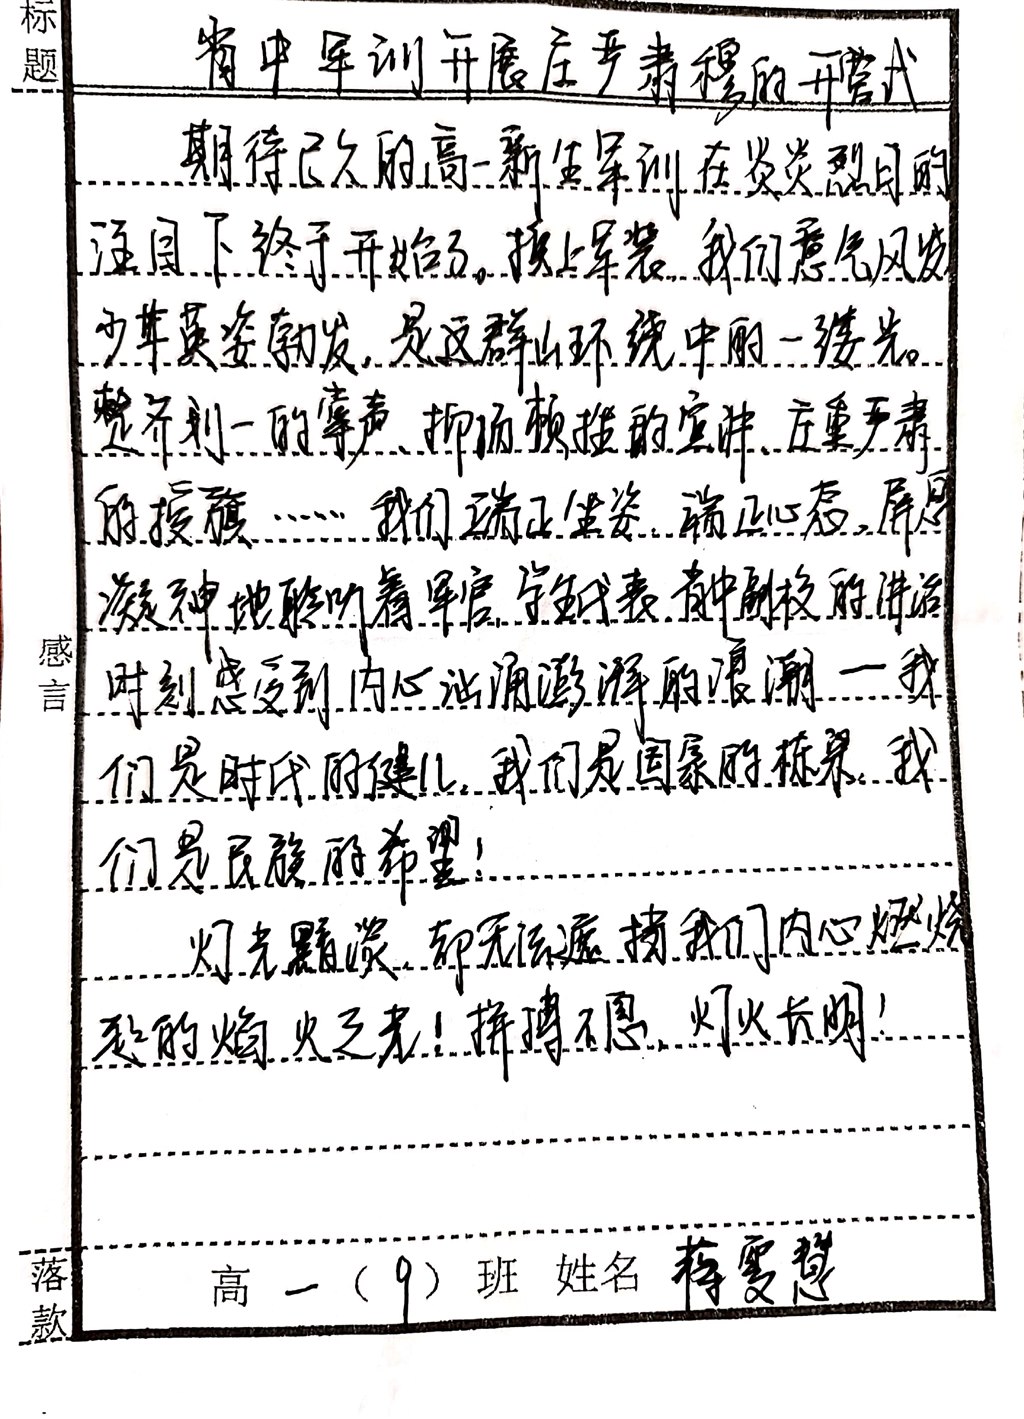 标题
省中军训开展庄严肃穆的开营式
期待已久的高一新生军训在炎炎烈日的
注目下终于开始了。换上军装,我们意气风发
少年英姿勃发,是这群山环绕中的一缕光。
整齐划一的掌声、抑扬顿挫的宣讲、庄重严肃
的授旗……我们端正坐姿、端正心态,屏息
凝神地聆听着军官、学生代表、省中副校的讲话
时刻感受到内心汹涌澎湃的浪潮—我
们是时代的健儿,我们是国家的栋梁,我
们是民族的希望!
感言
灯光黯淡,却无法遮挡我们内心燃烧
起的焰火之光!拼搏不息,灯火长明!
落款
高一(9)班 姓名 蒋雯慧